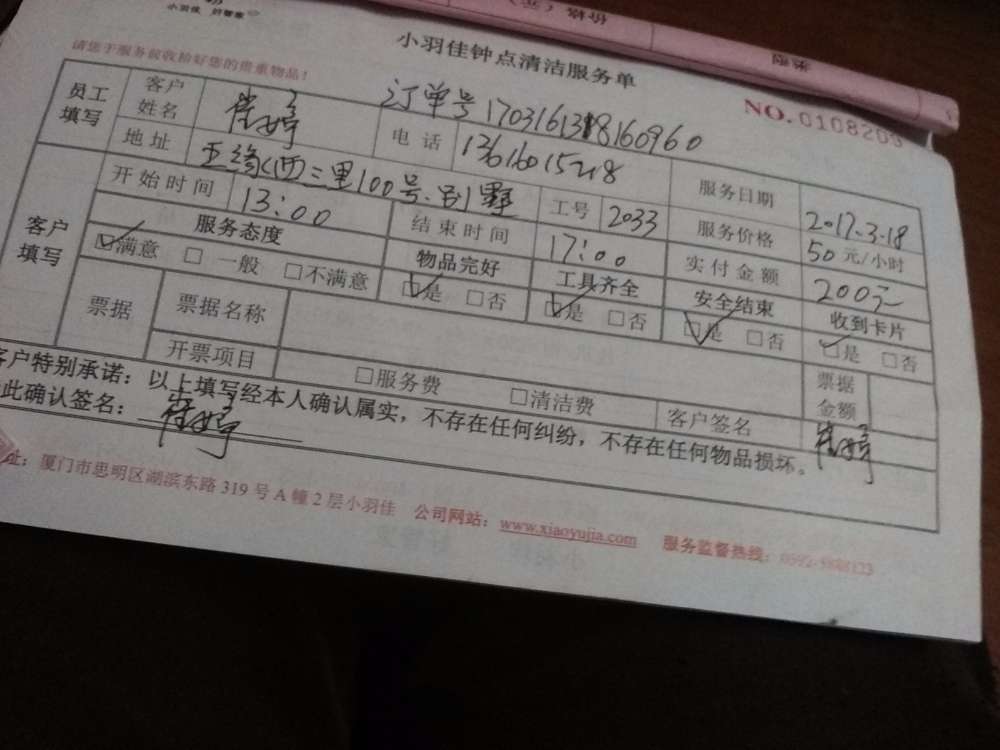 小羽佳 好管家
小羽佳钟点清洁服务单
请您于服务前收拾好您的贵重物品！
NO.0108203
订单号
员工填写 客户姓名 崔婷 电话 服务日期 2017.3.18
地址 西三里100号 别墅 工号 2033 服务价格 50元/小时
客户填写 开始时间 13:00 结束时间 17:00 实付金额 200元
服务态度 物品完好 工具齐全 安全结束 收到卡片
☑满意 □一般 □不满意 ☑是 □否 ☑是 □否 ☑是 □否 ☑是 □否
票据 票据名称 票据金额
开票项目 □服务费 □清洁费 客户签名 崔婷
客户特别承诺：以上填写经本人确认属实，不存在任何纠纷，不存在任何物品损坏。
此确认签名：崔婷
址：厦门市思明区湖滨东路319号A幢2层小羽佳 公司网站：www.xiaoyujia.com 服务监督热线：